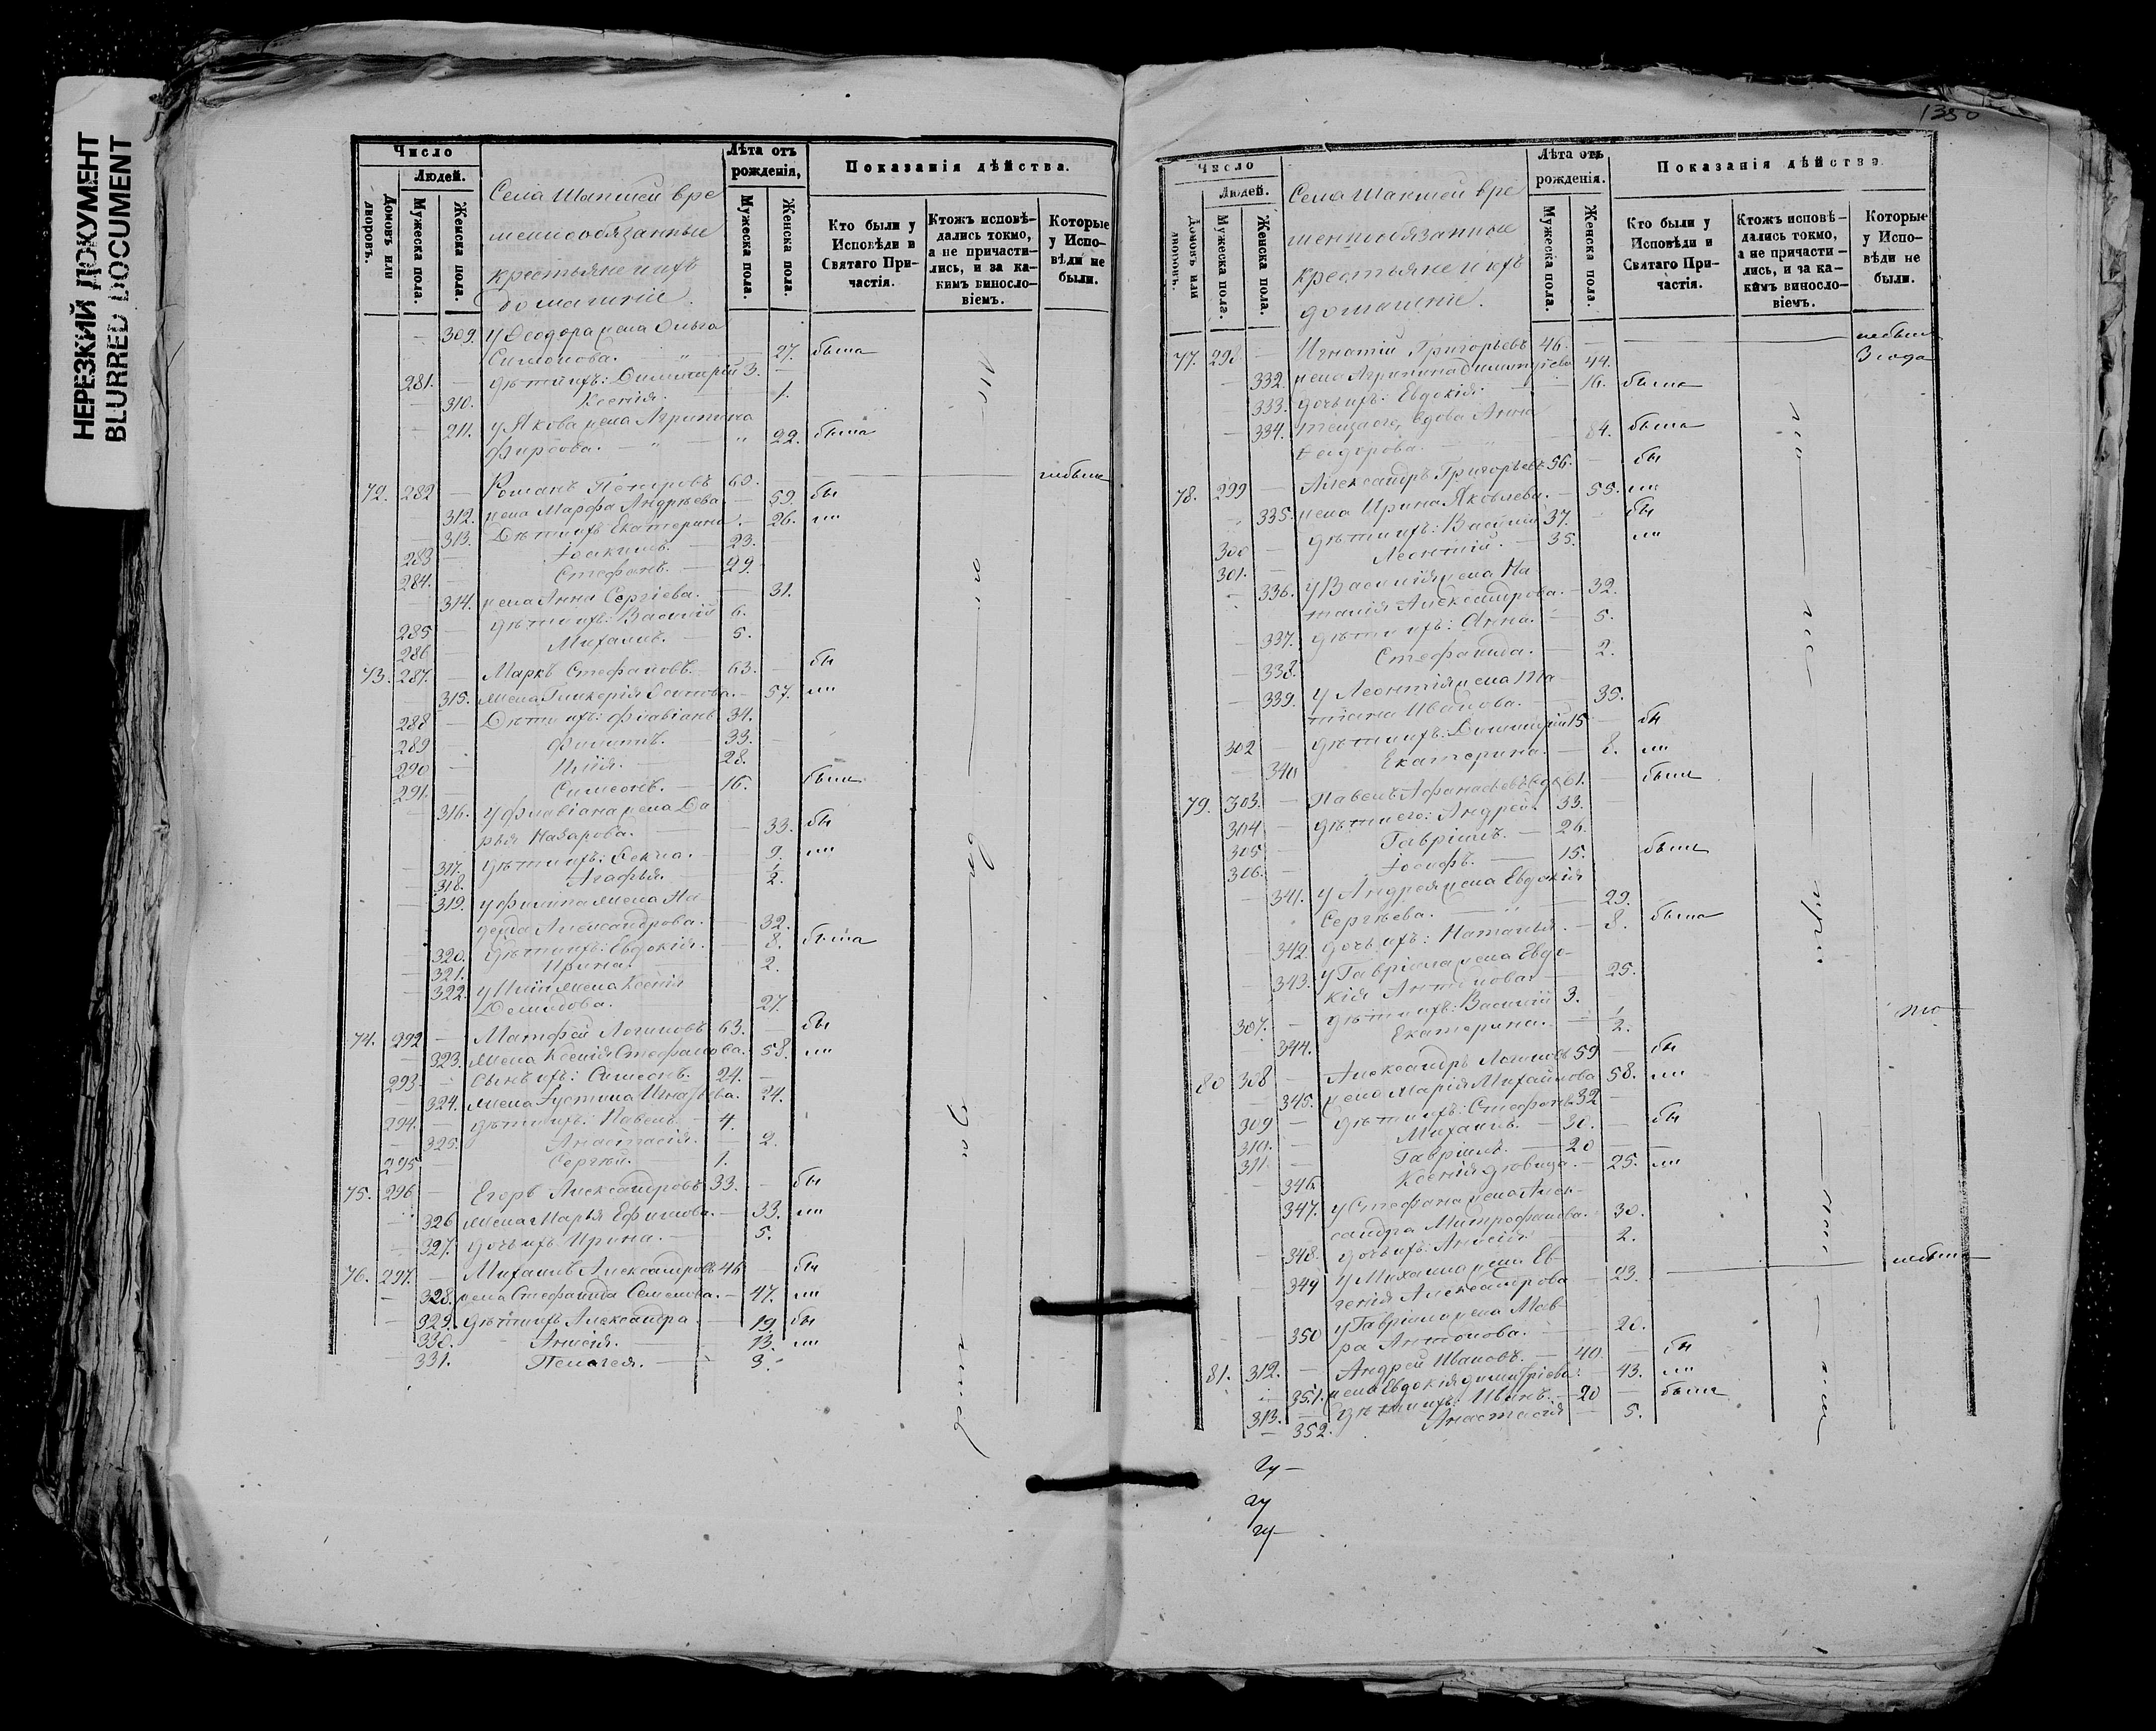 НЕРЕЗКИЙ ДОКУМЕНТ
BLURRED DOCUMENT
Число
Людей.
Домовъ или дворовъ.
Мужеска пола.
Женска пола.
Села Шапшей вре
меннообязанные
крестьяне и ихъ
домашніе.
Лѣта отъ рожденія,
Мужеска пола.
Женска пола.
Показанія дѣйства.
Кто были у Исповѣди и Святаго Причастія.
Ктожъ исповѣдались токмо, а не причастились, и за какимъ винословіемъ.
Которые у Исповѣди не были.
309. у Ѳеодора жена Ольга
Симонова. 27. была
281. дѣти ихъ: Димитрій 3.
310. Ксенія. 1.
211. у Якова жена Агрипина
Фирсова. 22. была
72. 282 Романъ Петровъ 60.
312. жена Марѳа Андреева. 59. бы
313. Дѣти ихъ Екатерина. 26. ли
283 Іоакимъ. 23.
284. Стефанъ. 29.
314. жена Анна Сергіева. 31.
285 дѣти ихъ: Василій 6.
286 Михаилъ. 5.
73. 287. Маркъ Стефановъ. 63. бы
315. жена Гликерія Осипова. 57. ли
288 Дѣти ихъ: Флавіанъ 34.
289 Филиппъ. 33.
290 Илія. 28.
291. Симеонъ. 16. были
316. у Флавіана жена Да
рья Назарова. 33. бы
317. дѣти ихъ: Ѳекла. 9. ли
318. Агафья. 1/2.
319. у Филипа жена На
дежда Александрова. 32.
320. дѣти ихъ: Евдокія. 8. была
321. Ирина. 2.
322. у Иліи жена Ксенія
Демидова. 27.
74. 292 Матфей Логиновъ 63. бы
323. жена Ксенія Стефанова. 58. ли
293 Сынъ ихъ: Симеонъ. 24.
324. жена Іустина Игнатьева. 24.
294. дѣти ихъ: Павелъ. 4.
325. Анастасія. 2.
295 Сергѣй. 1.
75. 296 Егоръ Александровъ 33. бы
326 жена Марья Ефимова. 33. ли
327. дочь ихъ Ирина. 5.
76. 297. Михаилъ Александровъ 46 бы
328. жена Стефанида Семенова. 47. ли
329. дѣти ихъ Александра. 19. бы
330. Анисія. 13. ли
331. Пелагея. 3.
1350
Число
Людей.
Домовъ или дворовъ.
Мужеска пола.
Женска пола.
Села Шапшей вре
меннообязанные
крестьяне и ихъ
домашніе.
Лѣта отъ рожденія.
Мужеска пола.
Женска пола.
Показанія дѣйства
Кто были у Исповѣди и Святаго Причастія.
Ктожъ исповѣдались токмо, а не причастились, и за какимъ винословіемъ.
Которые у Исповѣди не были.
77. 298 Игнатій Григорьевъ 46. небыли
332. жена Агрипина Димитріева 44. 3 года
333. дочь ихъ: Евдокія. 16. была
334. вдова Анна
Ѳеодорова. 84. была
78. 299 Александръ Григорьевъ 56. бы
335. жена Ирина Яковлева. 55. ли
300 дѣти ихъ: Василій 37. бы
301. Леонтій. 35. ли
336. у Василія жена На
талія Александрова. 32.
337. дѣти ихъ: Анна. 5.
338. Стефанида. 2.
339. у Леонтія жена Та
тіана Иванова. 35.
302 дѣти ихъ: Димитрій 15 бы
340 Екатерина. 8. ли
79. 303. Павелъ Афанасьевъ вдов 61. были
304 дѣти его: Андрей. 33.
305 Гавріилъ. 26.
306. Іосифъ. 15. были
341. у Андрея жена Евдокія
Сергѣева. 29.
342. дочь ихъ: Наталья. 8. была
343. у Гавріила жена Евдо-
кія Антонова 25.
307. дѣти ихъ: Василій 3.
344. Екатерина. 1/2.
80 308 Александръ Логиновъ 59 бы
345. жена Марія Михайлова 58. ли
309 дѣти ихъ: Стефанъ 32
310. Михаилъ. 30. бы
311 Гавріилъ. 20
346. Ксенія дѣвица. 25. ли
347. у Стефана жена Алек-
сандра Митрофанова. 30.
348. дочь ихъ: Анисія. 2.
349 у Михаила жена Ев-
генія Александрова 23. небыла
350 у Гавріила жена Мав-
ра Антонова. 20.
81. 312. Андрей Ивановъ. 40. бы
351. жена Евдокія Димитріева. 43. ли
313. дѣти ихъ: Иванъ. 20 были
352. Анастасія 5.